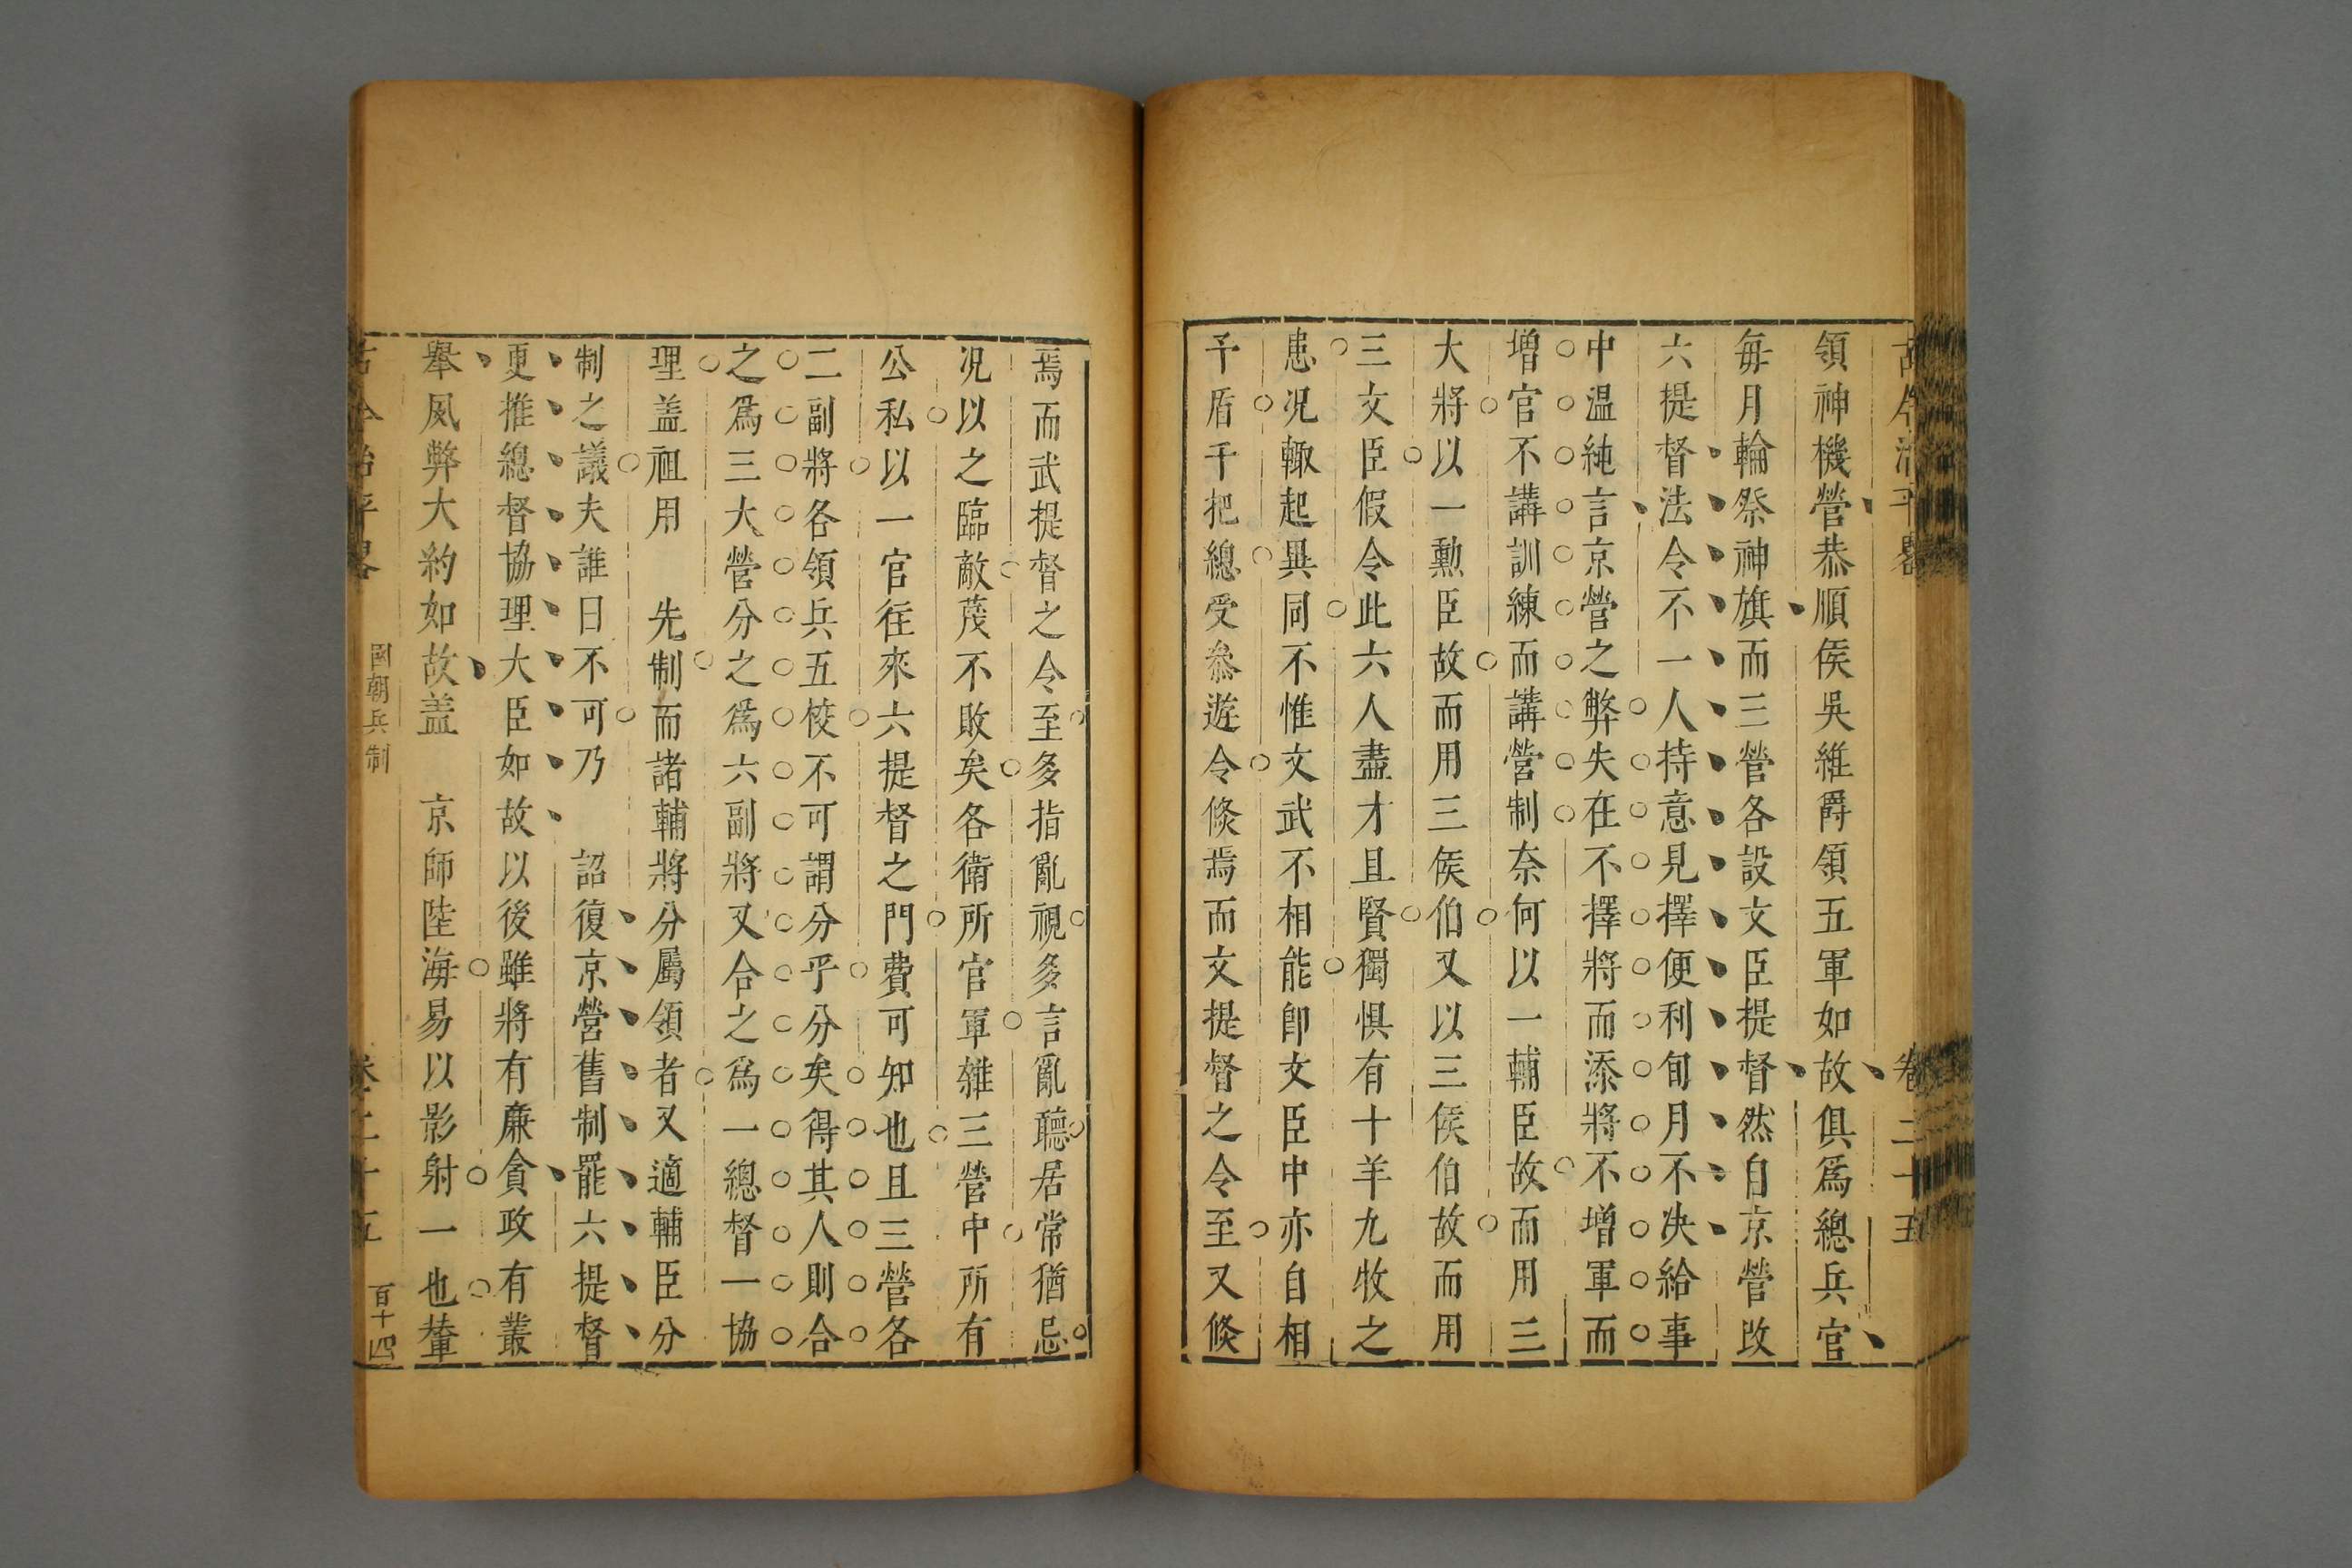 古今治平畧 卷二十五
領神機營恭順侯吳維爵領五軍如故俱爲總兵官
每月輪祭神旗而三營各設文臣提督然自京營改
六提督法令不一人持意見擇便利旬月不決給事
中温純言京營之弊失在不擇將而添將不增軍而
增官不講訓練而講營制奈何以一輔臣故而用三
大將以一勳臣故而用三侯伯又以三侯伯故而用
三文臣假令此六人盡才且賢獨惧有十羊九牧之
患况輙起異同不惟文武不相能卽文臣中亦自相
予盾千把總受叅遊令倐焉而文提督之令至又倐
焉而武提督之令至多指亂視多言亂聽居常猶忌
况以之臨敵蔑不敗矣各衛所官軍雜三營中所有
公私以一官往來六提督之門費可知也且三營各
二副將各領兵五校不可謂分乎分矣得其人則合
之爲三大營分之爲六副將又合之爲一總督一協
理盖祖用 先制而諸輔將分屬領者又適輔臣分
制之議夫誰曰不可乃 詔復京營舊制罷六提督
更推總督協理大臣如故以後雖將有廉貪政有叢
舉風弊大約如故盖 京師陸海易以影射一也輦
古今治平畧 國朝兵制 卷二十五 百十四